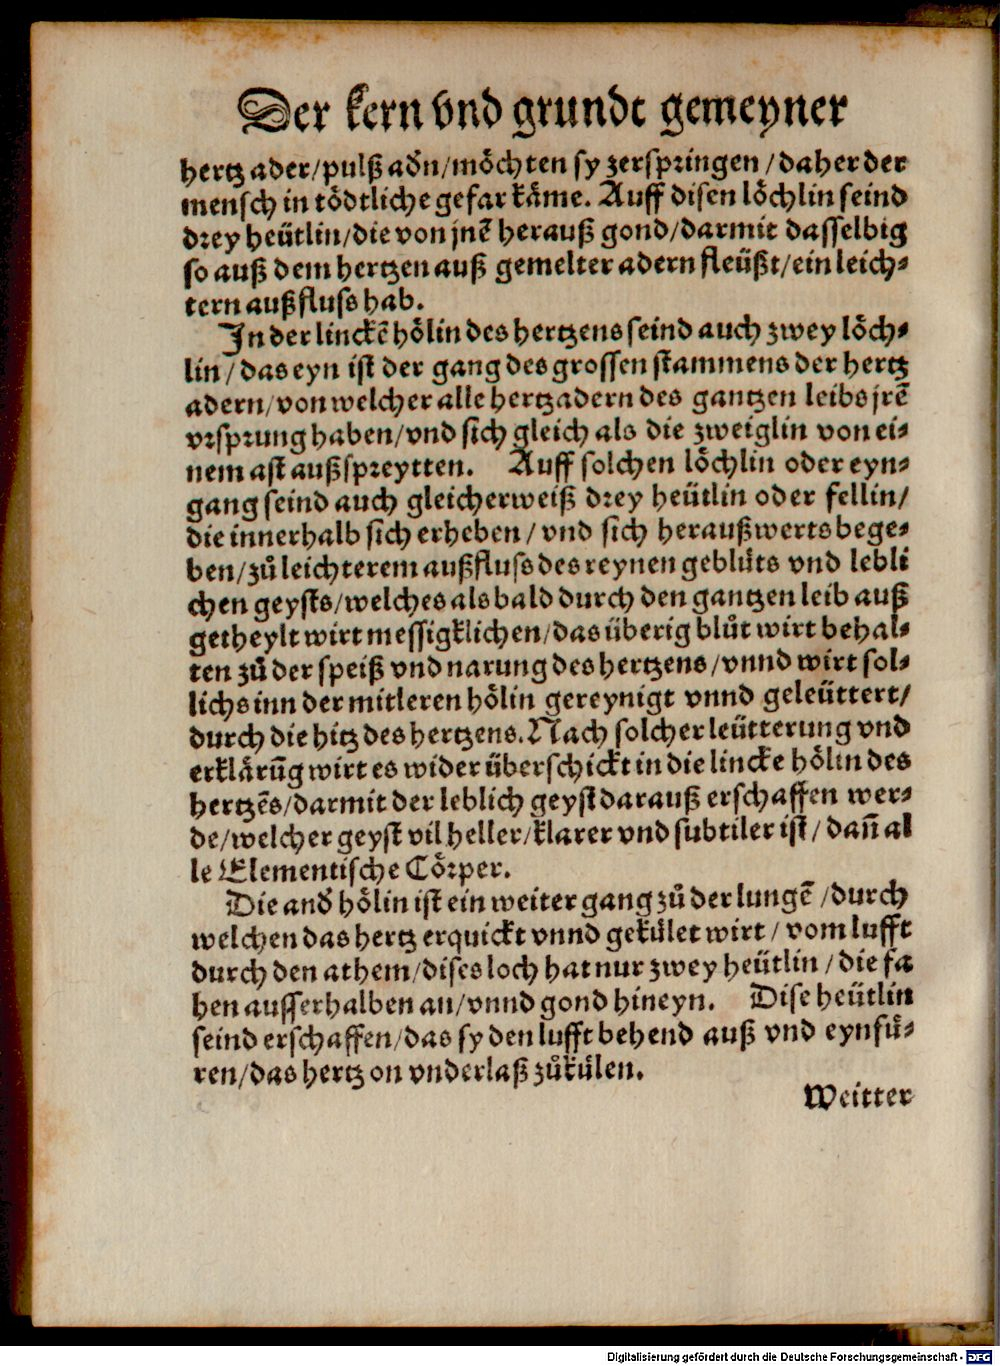 Der kern vnd grundt gemeyner
hertz ader/pulß adn̄/möchten sy zerspringen/daher der
mensch in tödtliche gefar käme. Auff disen löchlin seind
drey heütlin/die von jnē herauß gond/darmit dasselbig
so auß dem hertzen auß gemelter adern fleüßt/ein leich-
tern außfluss hab.
In der linckē hölin des hertzens seind auch zwey löch-
lin/das eyn ist der gang des grossen stammens der hertz
adern/von welcher alle hertzadern des gantzen leibs jrē
vrsprung haben/vnd sich gleich als die zweiglin von ei-
nem ast außspreytten. Auff solchen löchlin oder eyn-
gang seind auch gleicherweiß drey heütlin oder fellin/
die innerhalb sich erheben/vnd sich heraußwerts bege-
ben/zů leichterem außfluss des reynen geblůts vnd lebli
chen geysts/welches als bald durch den gantzen leib auß
getheylt wirt messigklichen/das überig blůt wirt behal-
ten zů der speiß vnd narung des hertzens/vnnd wirt sol-
lichs inn der mitleren hölin gereynigt vnnd geleüttert/
durch die hitz des hertzens. Nach solcher leütterung vnd
erklärūg wirt es wider überschickt in die lincke hölin des
hertzēs/darmit der leblich geyst darauß erschaffen wer-
de/welcher geyst vil heller/klarer vnd subtiler ist/dañ al
le Elementische Cörper.
Die and̄ hölin ist ein weiter gang zů der lungē/durch
welchen das hertz erquickt vnnd gekület wirt/vom lufft
durch den athem/dises loch hat nur zwey heütlin/die fa
hen ausserhalben an/vnnd gond hineyn. Dise heütlin
seind erschaffen/das sy den lufft behend auß vnd eynfü-
ren/das hertz on vnderlaß zůkülen.
Weitter
Digitalisierung gefördert durch die Deutsche Forschungsgemeinschaft - DFG